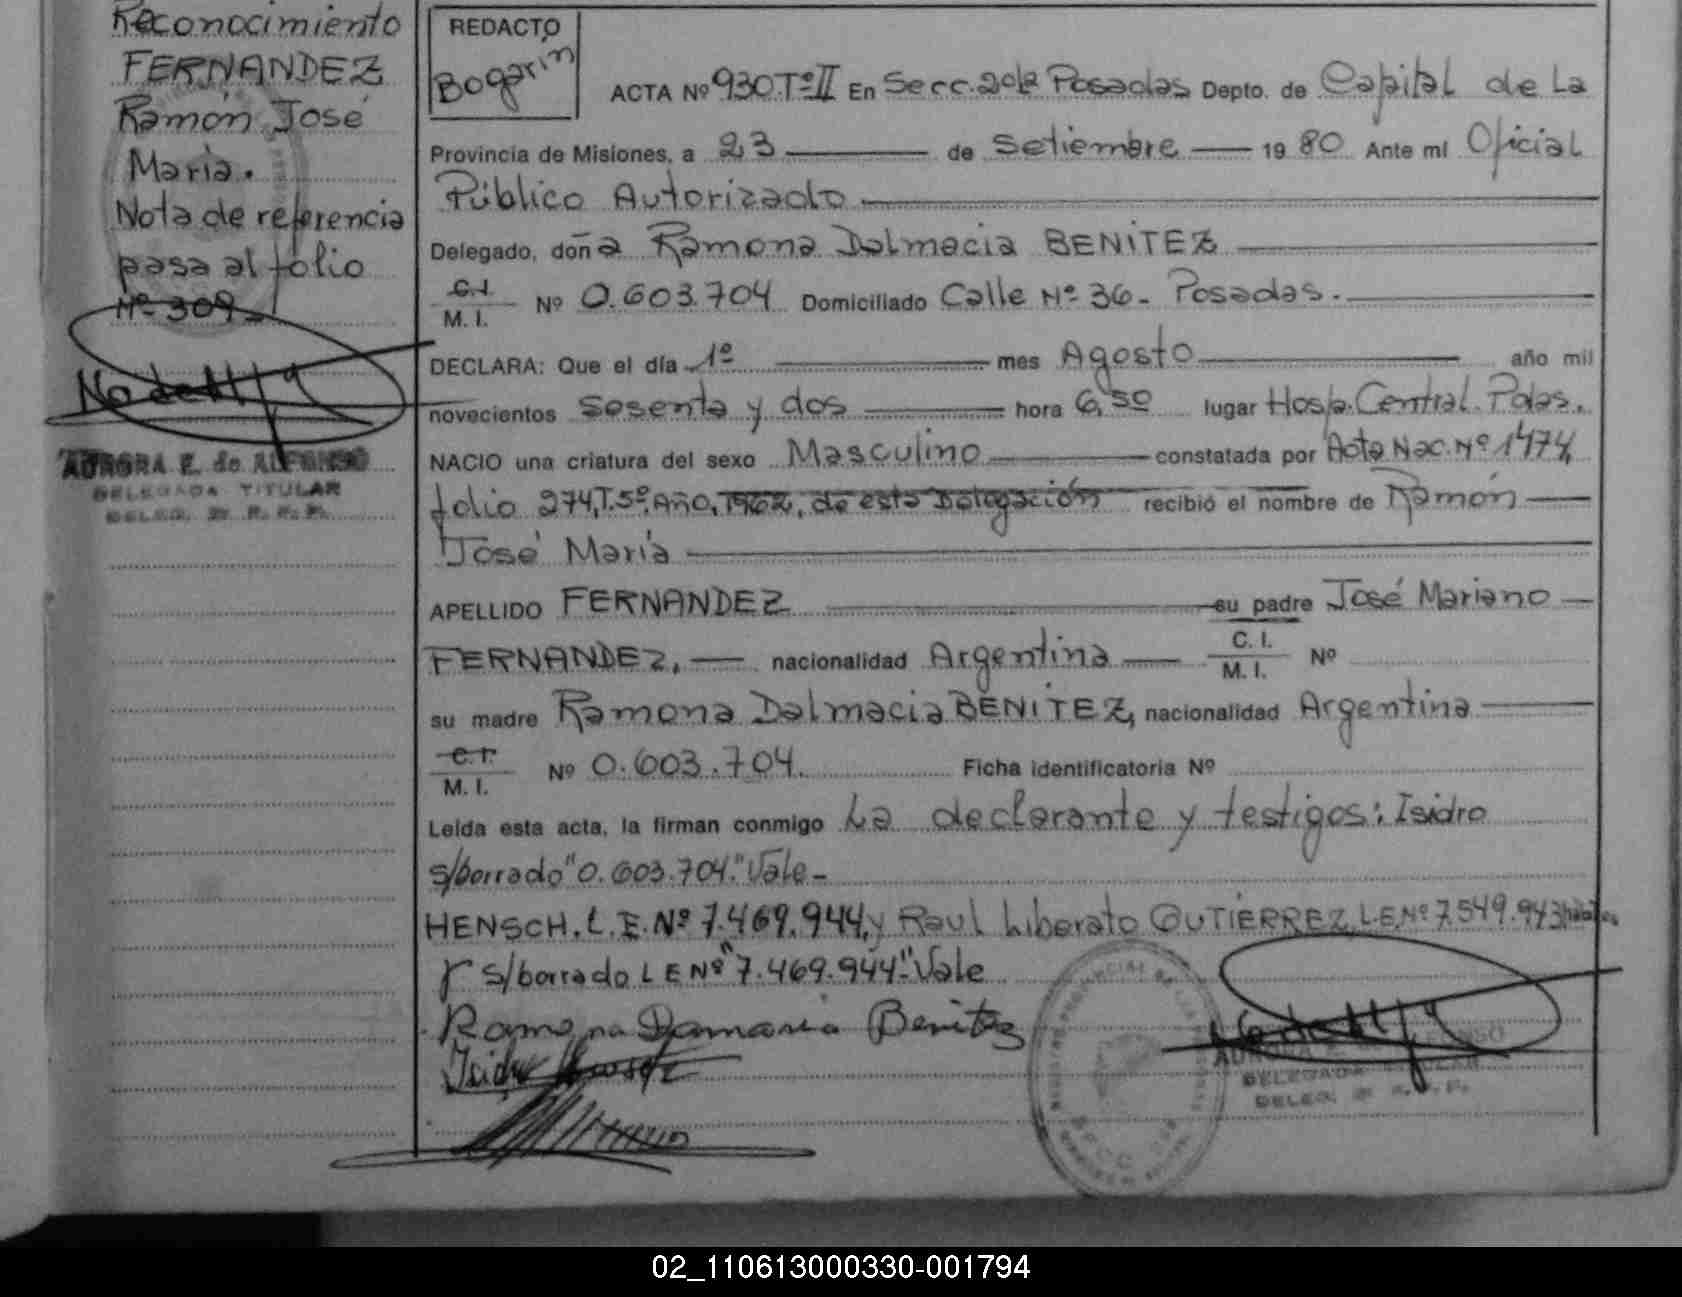 Reconocimiento
FERNANDEZ
Ramón José
María.
Nota de referencia
pasa al folio
Nº 309
AURORA E. de ALFONSO
DELEGADA TITULAR
DELEG. 2ª R. P. P.
REDACTO
Bogarin
ACTA Nº 930.Tº II En Secc. 2da Posadas Depto. de Capital de La
Provincia de Misiones, a 23 de Setiembre 19 80 Ante mi Oficial
Público Autorizado
Delegado, doña Ramona Dalmacia BENITEZ
C.I. M. I. Nº 0.603.704 Domiciliado Calle Nº 36- Posadas.
DECLARA: Que el día 1º mes Agosto año mil
novecientos sesenta y dos hora 6,50 lugar Hosp. Central. Pdas.
NACIO una criatura del sexo Masculino constatada por Acta Nac. Nº 1474,
folio 274, T. 5º, Año, 1962, de esta Delegación recibió el nombre de Ramón
José María
APELLIDO FERNANDEZ su padre José Mariano
FERNANDEZ, nacionalidad Argentina C. I. M. I. Nº
su madre Ramona Dalmacia BENITEZ, nacionalidad Argentina
C. I. M. I. Nº 0.603.704. Ficha identificatoria Nº
Leída esta acta, la firman conmigo La declarante y testigos: Isidro
s/borrado "0.603.704." Vale-
HENSCH, L.E. Nº 7.469.944, y Raul Liberato GUTIERREZ, L.E. Nº 7.549.943
s/borrado L E Nº "7.469.944" Vale
Ramona Damasia Benitez
Isidro
AURORA E. de ALFONSO
DELEGADA TITULAR
DELEG. 2ª R. P. P.
02_110613000330-001794